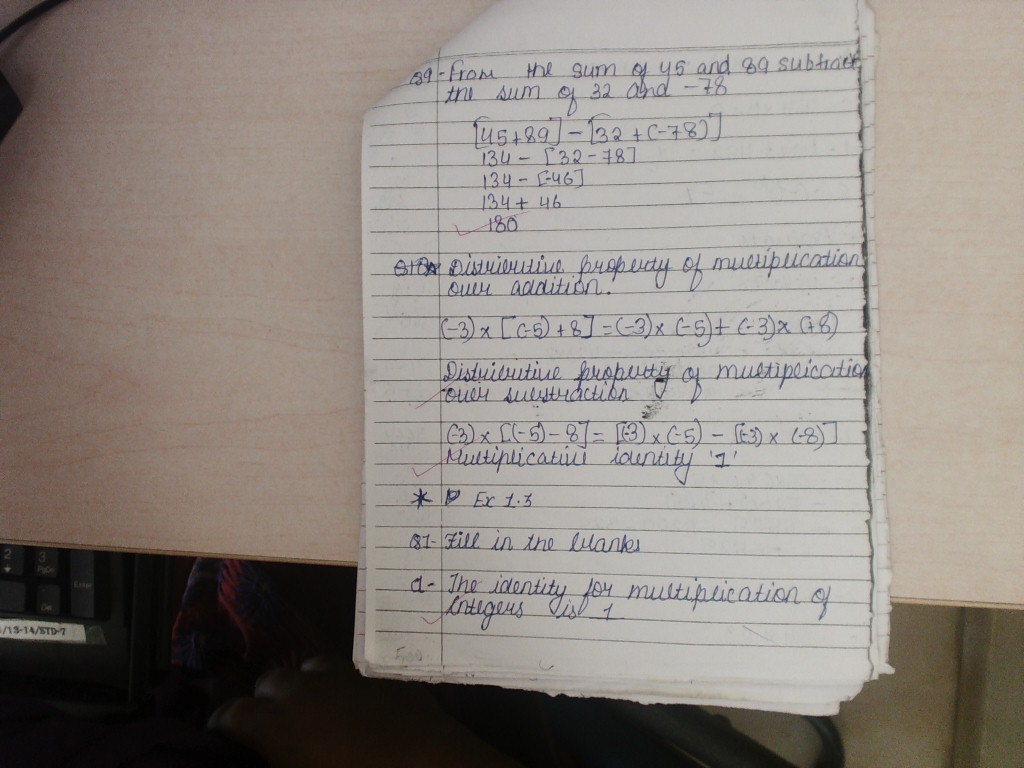 Q9- From the sum of 45 and 89 subtract
the sum of 32 and -78
[45+89] - [32 + (-78)]
134 - [32 - 78]
134 - [-46]
134 + 46
180
Distributive property of multiplication
over addition.
(-3) x [(-5) + 8] = (-3) x (-5) + (-3) x (+8)
Distributive property of multiplication
over substraction
(-3) x [(-5) - 8] = [(-3) x (-5) - [(-3) x (-8)]
Multiplicative identity '1'
* Ex 1.3
Q1- Fill in the blanks
a- The identity for multiplication of
integers is 1
2
3
PgDn
Enter
Del
/13-14/STD-7